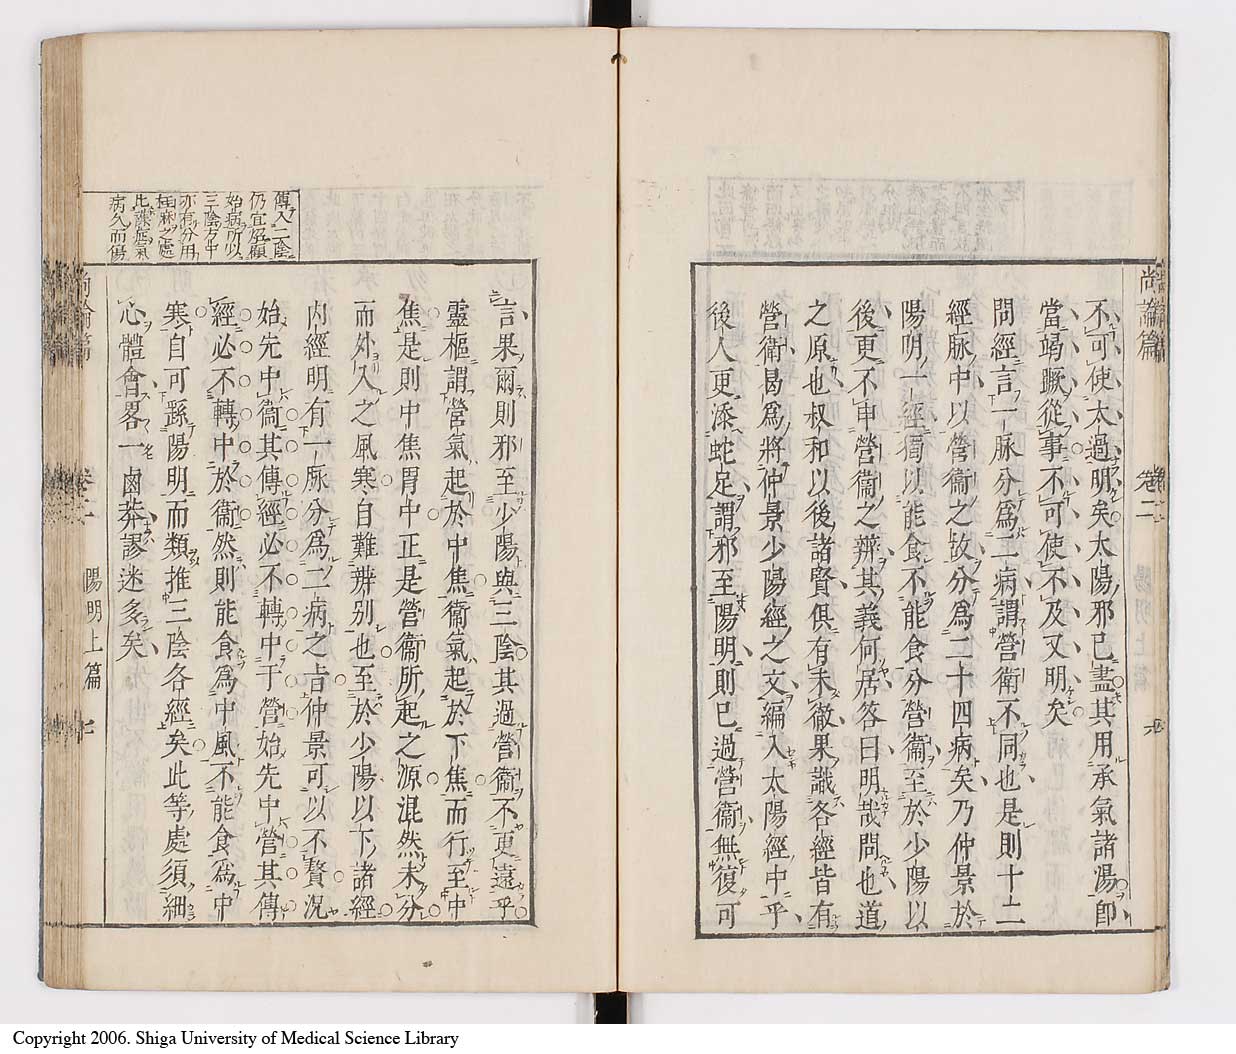 尚論篇 卷二 陽明上篇
不可使太過明矣太陽邪已盡其用承氣諸湯卽
當竭蹶從事不可使不及又明矣
問經言一脉分爲二病謂營衛不同也是則十二
經脉中以營衛之故分爲二十四病矣乃仲景於
陽明一經獨以能食不能食分營衞至於少陽以
後更不申營衞之辨其義何居答曰明哉問也道
之原也叔和以後諸賢俱有未徹果識各經皆有
營衛曷爲將仲景少陽經之文編入太陽經中乎
後人更添蛇足謂邪至陽明則已過營衞無復可
言果爾則邪至少陽與三陰其過營衞不更遠乎
靈樞謂營氣起於中焦衞氣起於下焦而行至中
焦是則中焦胃中正是營衞所起之源混然未分
而外入之風寒自難辨别也至於少陽以下諸經
内經明有一脉分爲二病之旨仲景可以不贅況
始先中衞其傳經必不轉中于營始先中營其傳
經必不轉中於衞然則能食爲中風不能食爲中
寒自可繇陽明而類推三陰各經矣此等處須細
心體會畧一鹵莽謬迷多矣
傳入三陰
仍宜照顧
始病所以
三陰方中
亦有分用
桂麻之處
病久而傷
尚論篇 卷二 陽明上篇
Copyright 2006. Shiga University of Medical Science Library